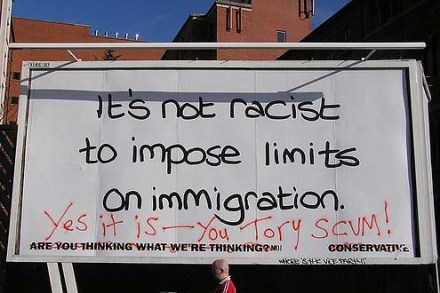 It's not racist
to impose limits
on immigration.
Yes it is — You Tory SCUM!
ARE YOU THINKING WHAT WE'RE THINKING? NO!
CONSERVATIVE
WHERE IS THE VICE PARTY?